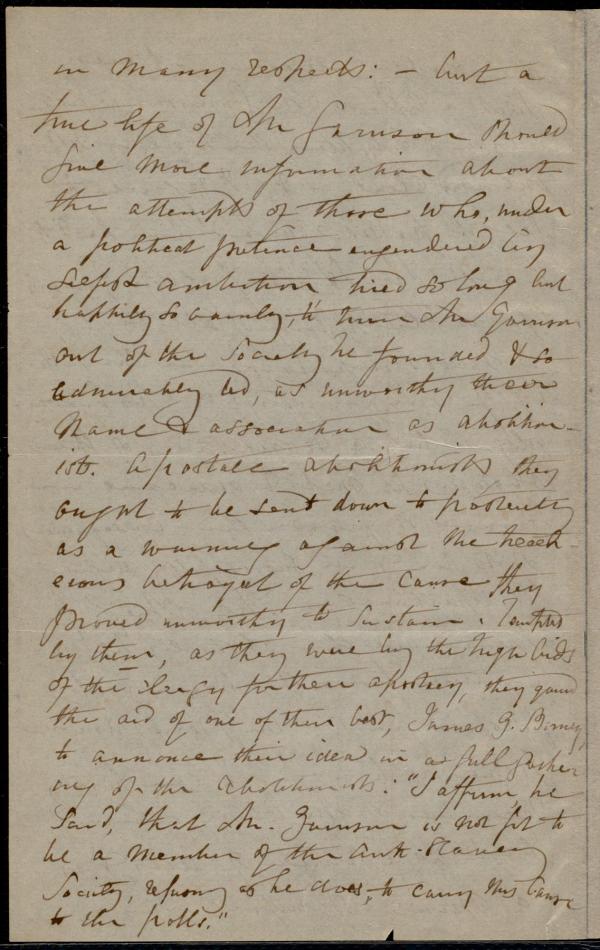 in many respects: - but a
true life of Mr Garrison should
give more information about
the attempts of those who, under
a political pretence engendered by
selfish ambition tried so long but
happily so vainly, to turn Mr Garrison
out of the Society he founded & so
admirably led, as unworthy their
name & association as abolition-
ists. Apostate abolitionists they
ought to be sent down to posterity
as a warning against the treach-
erous betrayal of the cause they
proved unworthy to sustain. Tempted
by them, as they were by the high bids
of the clergy for their apostasy, they gained
the aid of one of their best, James G. Birney,
to annonce their idea in a full gather
ing of the Abolitionists: "I affirm, he
said, that Mr. Garrison is not fit to
be a member of the Anti-Slavery
Society, refusing as he does, to carry this Cause
to the polls."